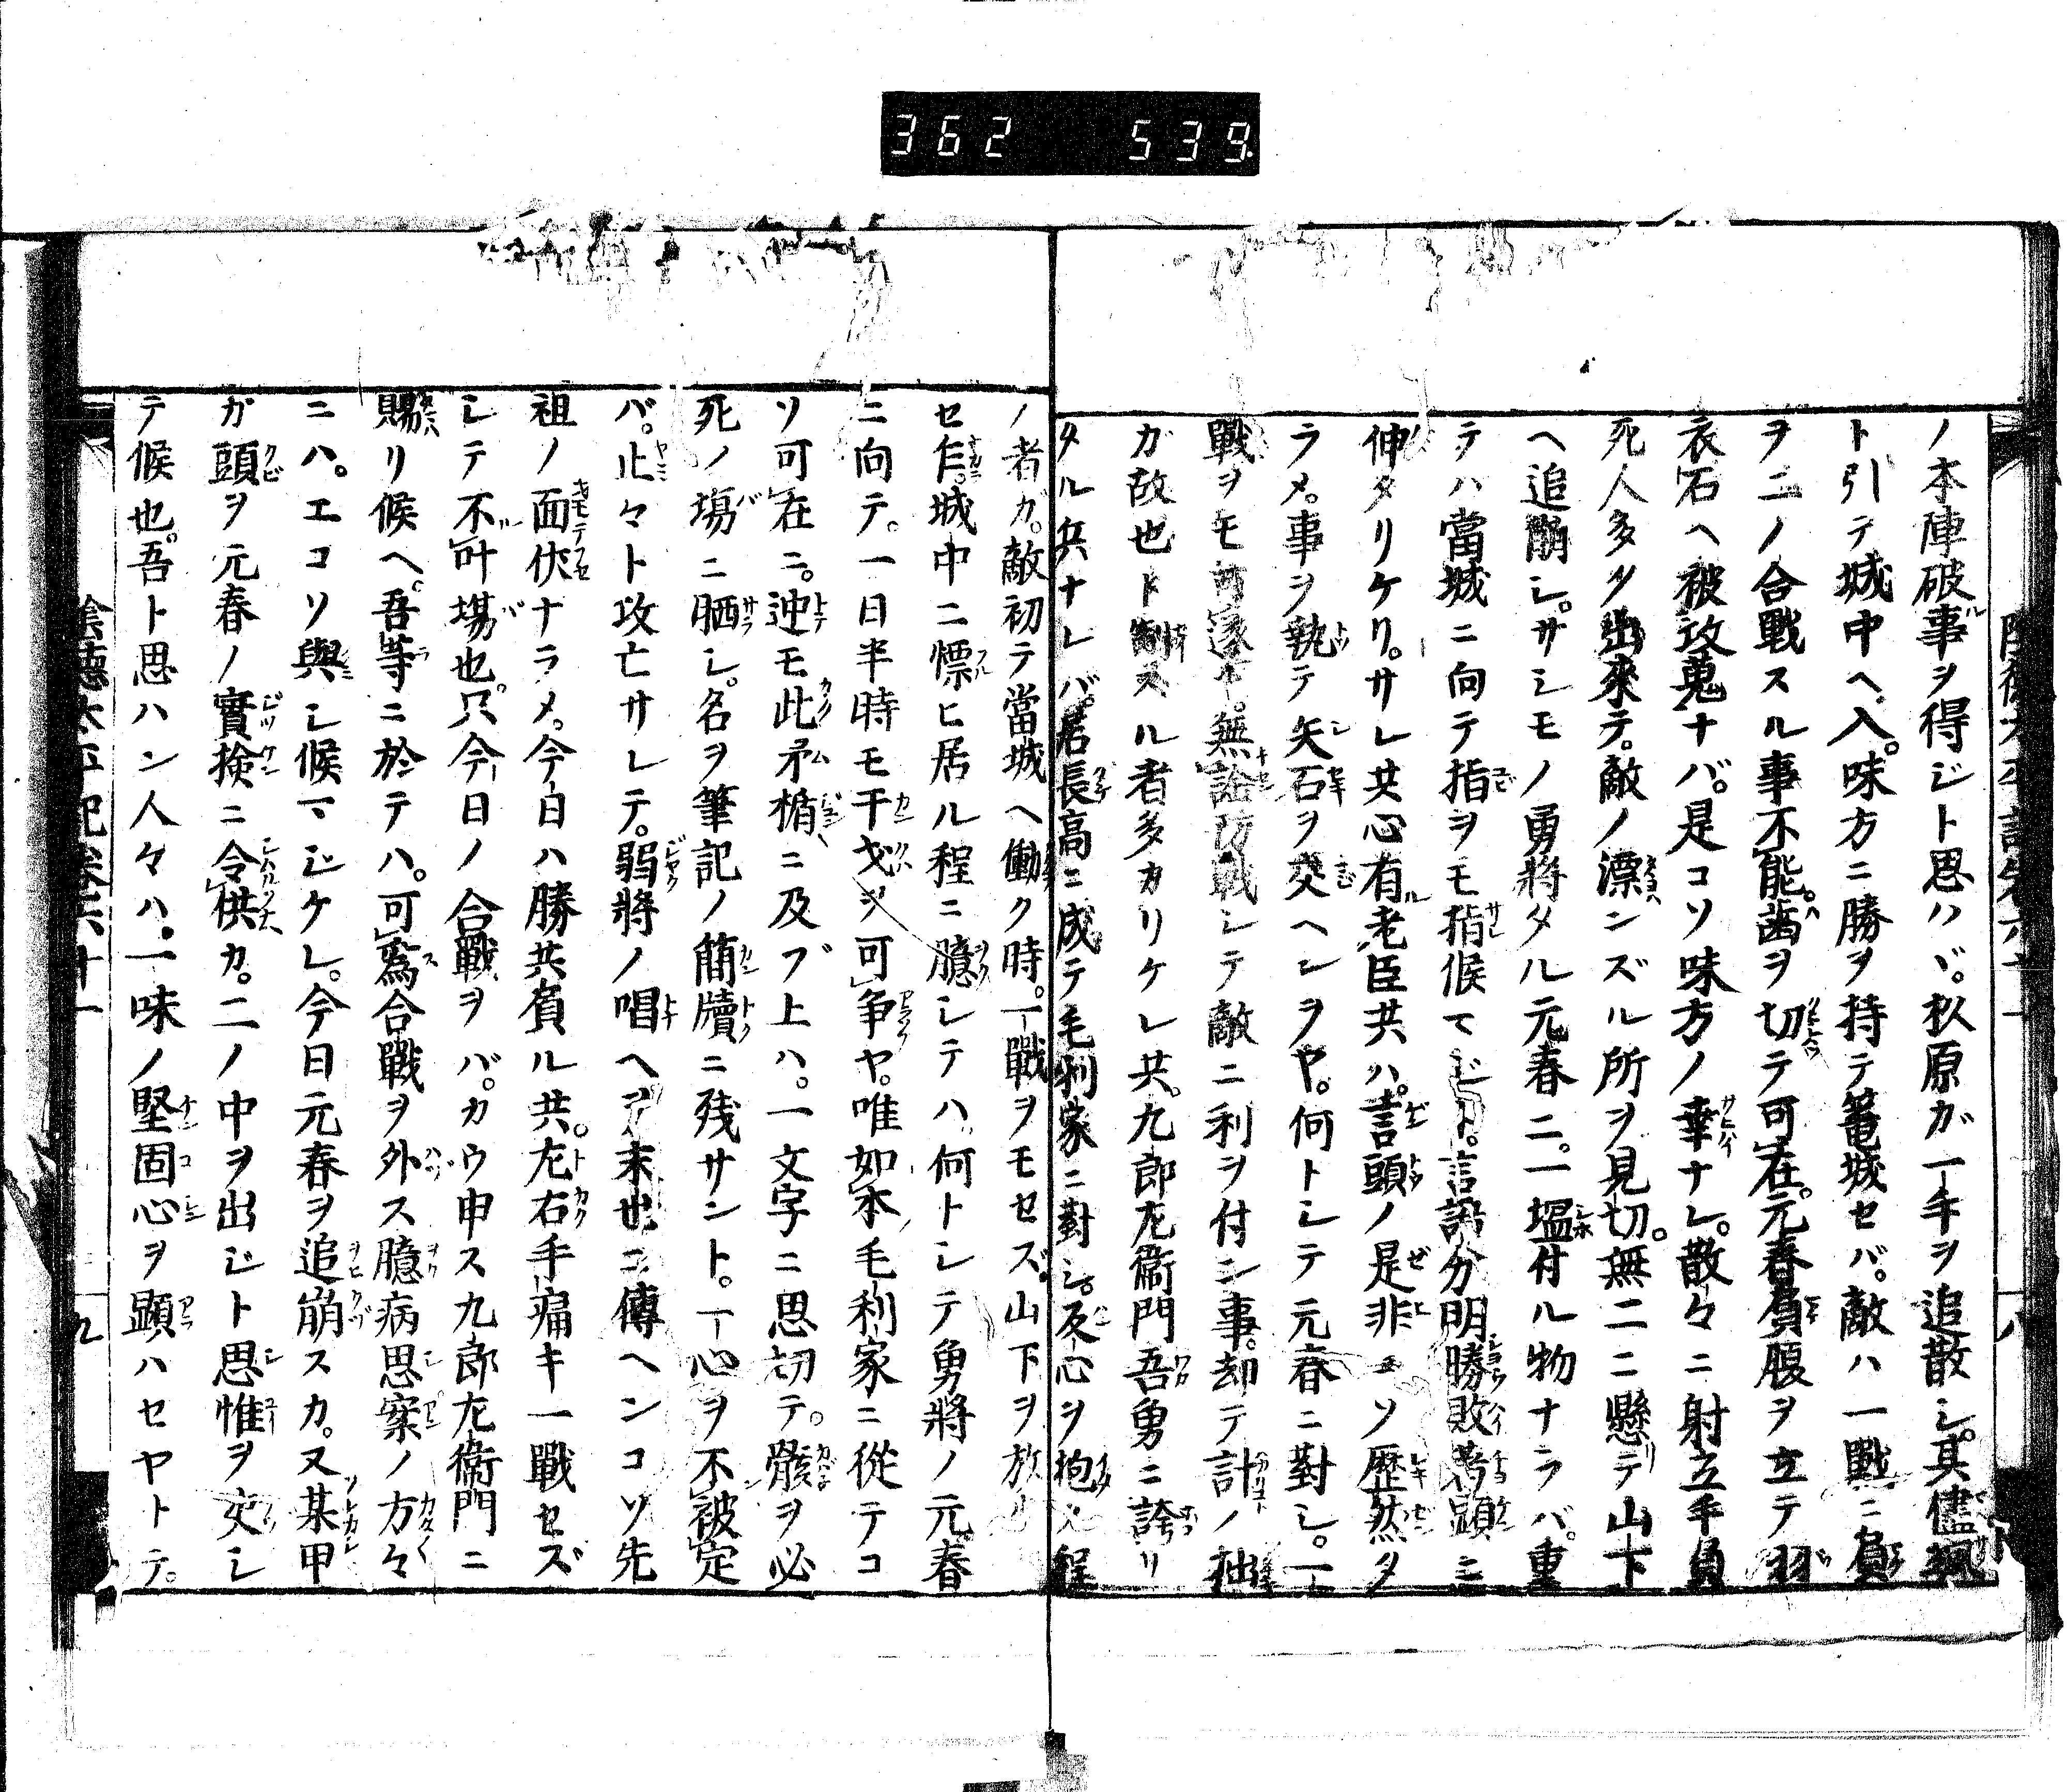 362 539
ノ本陣破事ヲ得ジト思ハヾ。杦原ガ一手ヲ追散シ。其儘颯
ト引テ城中ヘ入。味方ニ勝ヲ持テ篭城セバ。敵ハ一戰ニ負
ヲニノ合戰スル事不能。歯ヲ切テ可在。元春負腹ヲ立テ羽
衣石ヘ被攻蒐ナバ。是コソ味方ノ幸ナレ。散々ニ射立手負
死人多ク出來テ。敵ノ漂ンズル所ヲ見切。無二ニ懸テ山下
ヘ追崩シ。サシモノ勇將タル元春ニ。一塩付ル物ナラバ。重
テハ當城ニ向テ指ヲモ指候マジト。言語分明勝敗考顕ニ
伸タリケリ。サレ共心有老臣共ハ。言頭ノ是非コソ歴然タ
ラメ。事ヲ執テ矢石ヲ交ヘンヲヤ。何トシテ元春ニ對シ。一
戰ヲモ可遂。無詮防戰シテ敵ニ利ヲ付ン事。却テ計ノ拙
ガ故也ト制スル者多カリケレ共。九郎左衞門吾勇ニ誇リ
タル兵ナレバ。居長高ニ成テ毛利家ニ對シ。反心ヲ抱ク程
ノ者ガ。敵初テ當城ヘ働ク時。一戰ヲモセズ。山下ヲ放
セ乍。城中ニ慓ヒ居ル程ニ臆シテハ。何トシテ勇將ノ元春
ニ向テ。一日半時モ干戈ヲ可争ヤ。唯如本毛利家ニ從テコ
ソ可在ニ。迚モ此矛楯ニ及ブ上ハ。一文字ニ思切テ。骸ヲ必
死ノ塲ニ晒シ。名ヲ筆記ノ簡牘ニ残サント。一心ヲ不被定
バ。止々ト攻亡サレテ。弱將ノ唱ヘヲ末世ニ傳ヘンコソ先
祖ノ面伏ナラメ。今日ハ勝共負ル共。左右手痛キ一戰セズ
シテ不叶塲也。只今日ノ合戰ヲバ。カウ申ス九郎左衞門ニ
賜リ候ヘ。吾等ニ於テハ。可爲合戰ヲ外ス臆病思案ノ方々
ニハ。エコソ與シ候マジケレ。今日元春ヲ追崩スカ。又某甲
ガ頭ヲ元春ノ實検ニ令供カ。二ノ中ヲ出ジト思惟ヲ定シ
テ候也。吾ト思ハン人々ハ。一味ノ堅固心ヲ顕ハセヤトテ。
陰徳太平記巻六十一 九